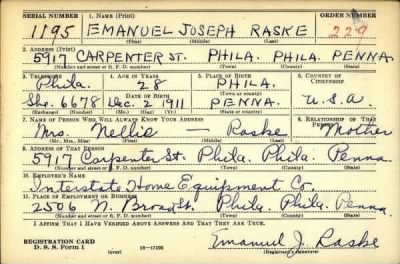 SERIAL NUMBER 1. NAME (Print) ORDER NUMBER
1195 EMANUEL JOSEPH RASKE 229
(First) (Middle) (Last)
2. ADDRESS (Print)
5917 CARPENTER ST. PHILA. PHILA. PENNA.
(Number and street or R. F. D. number) (Town) (County) (State)
3. TELEPHONE 4. AGE IN YEARS 5. PLACE OF BIRTH 6. COUNTRY OF CITIZENSHIP
Phila. 28 PHILA.
DATE OF BIRTH (Town or county)
She. 6678 Dec. 2 1911 PENNA. U.S.A.
(Exchange) (Number) (Mo.) (Day) (Yr.) (State or country)
7. NAME OF PERSON WHO WILL ALWAYS KNOW YOUR ADDRESS 8. RELATIONSHIP OF THAT PERSON
Mrs. Nellie — Raske Mother
(Mr., Mrs., Miss) (First) (Middle) (Last)
9. ADDRESS OF THAT PERSON
5917 Carpenter St. Phila. Phila. Penna.
(Number and street or R. F. D. number) (Town) (County) (State)
10. EMPLOYER'S NAME
Interstate Home Equipment Co.
11. PLACE OF EMPLOYMENT OR BUSINESS
2506 N. Broad St. Phila. Phila. Penna.
(Number and street or R. F. D. number) (Town) (County) (State)
I AFFIRM THAT I HAVE VERIFIED ABOVE ANSWERS AND THAT THEY ARE TRUE.
REGISTRATION CARD
D. S. S. Form 1 (over) 16—17105 Emanuel J. Raske
(Registrant's signature)